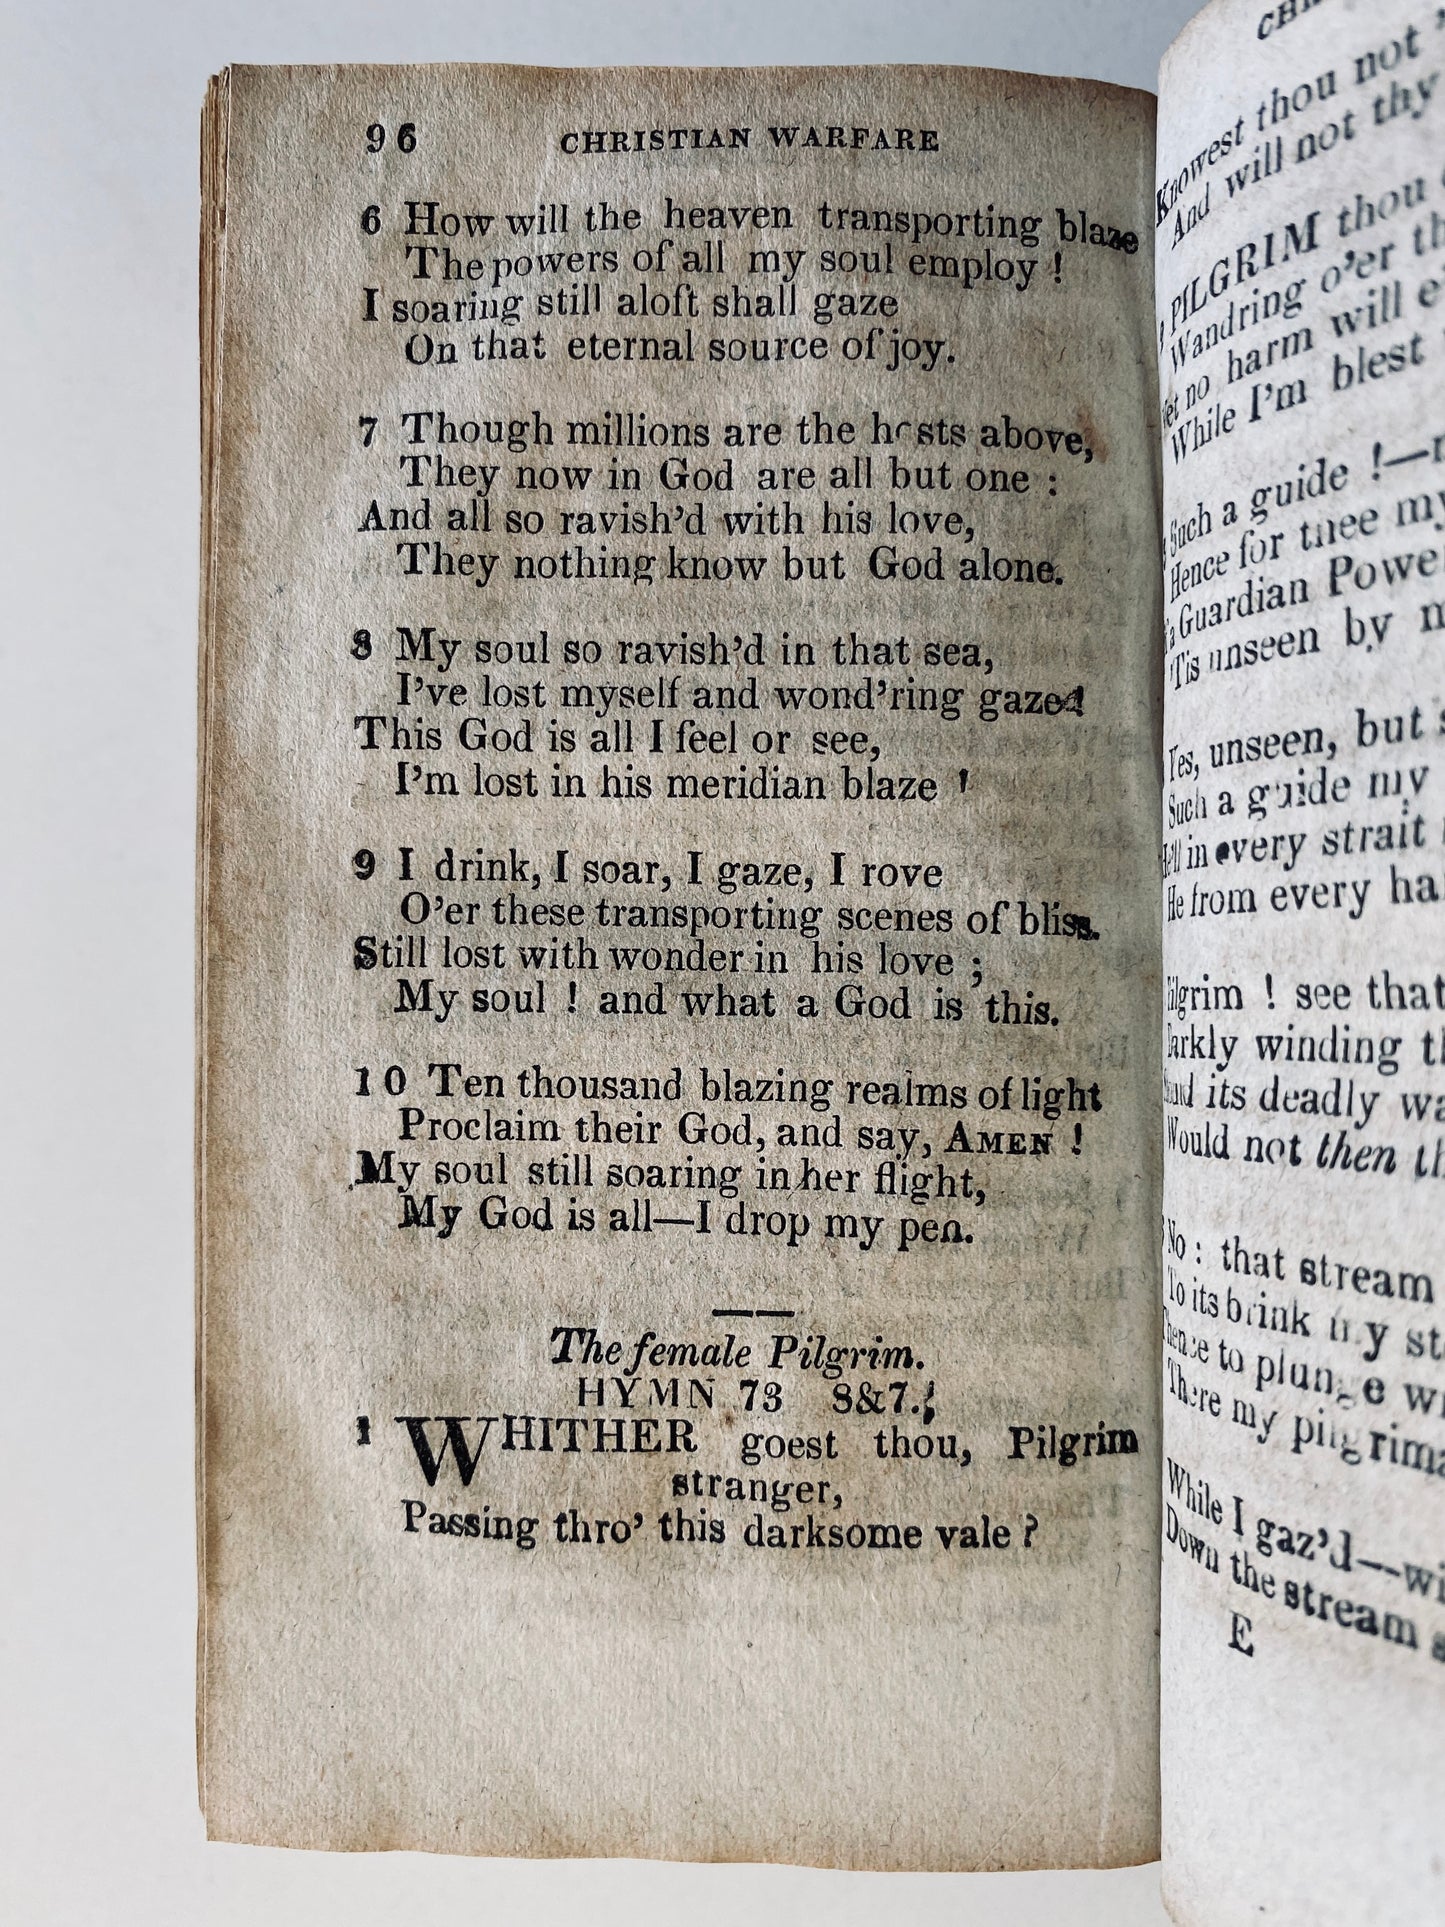 96 CHRISTIAN WARFARE
6 How will the heaven transporting blaze
The powers of all my soul employ !
I soaring still aloft shall gaze
On that eternal source of joy.
7 Though millions are the hosts above,
They now in God are all but one :
And all so ravish'd with his love,
They nothing know but God alone.
8 My soul so ravish'd in that sea,
I've lost myself and wond'ring gazed
This God is all I feel or see,
I'm lost in his meridian blaze !
9 I drink, I soar, I gaze, I rove
O'er these transporting scenes of bliss.
Still lost with wonder in his love ;
My soul ! and what a God is this.
10 Ten thousand blazing realms of light
Proclaim their God, and say, AMEN !
My soul still soaring in her flight,
My God is all—I drop my pen.
The female Pilgrim.
HYMN 73 8&7.
1 WHITHER goest thou, Pilgrim
stranger,
Passing thro' this darksome vale ?
Knowest thou not
And will not thy
PILGRIM thou
Wandring o'er
no harm will
While I'm blest
Such a guide !—
Hence for thee my
Guardian
'Tis unseen by
Yes, unseen, but
Such a guide my
in every strait
He from every
Pilgrim ! see that
Darkly winding
its deadly
Would not then
No : that stream
To its brink my
Thence to plunge
There my
While I gaz'd—
Down the stream
E